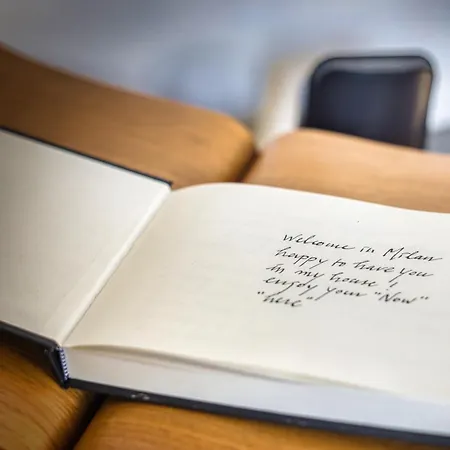 Welcome in Milan
happy to have you
in my house!
enjoy your "Now"
"here"